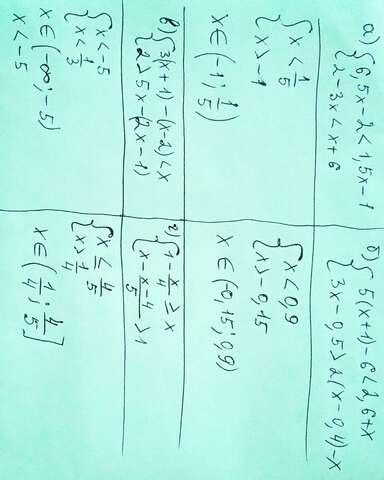 а) { 6,5x-2<1,5x-1
2-3x<x+6
{ x<1/5
x>-1
x∈(-1; 1/5)
б) { 5(x+1)-6<2,6+x
3x-0,5>2(x-0,4)-x
{ x<0,9
x>-0,15
x∈(-0,15; 0,9)
в) { 3(x+1)-(x-2)<x
2>5x-(2x-1)
{ x<-5
x<1/3
x∈(-∞; -5)
x<-5
г) { 1-x/4≥x
x-(x-4)/5>1
{ x≤4/5
x>1/4
x∈(1/4; 4/5]